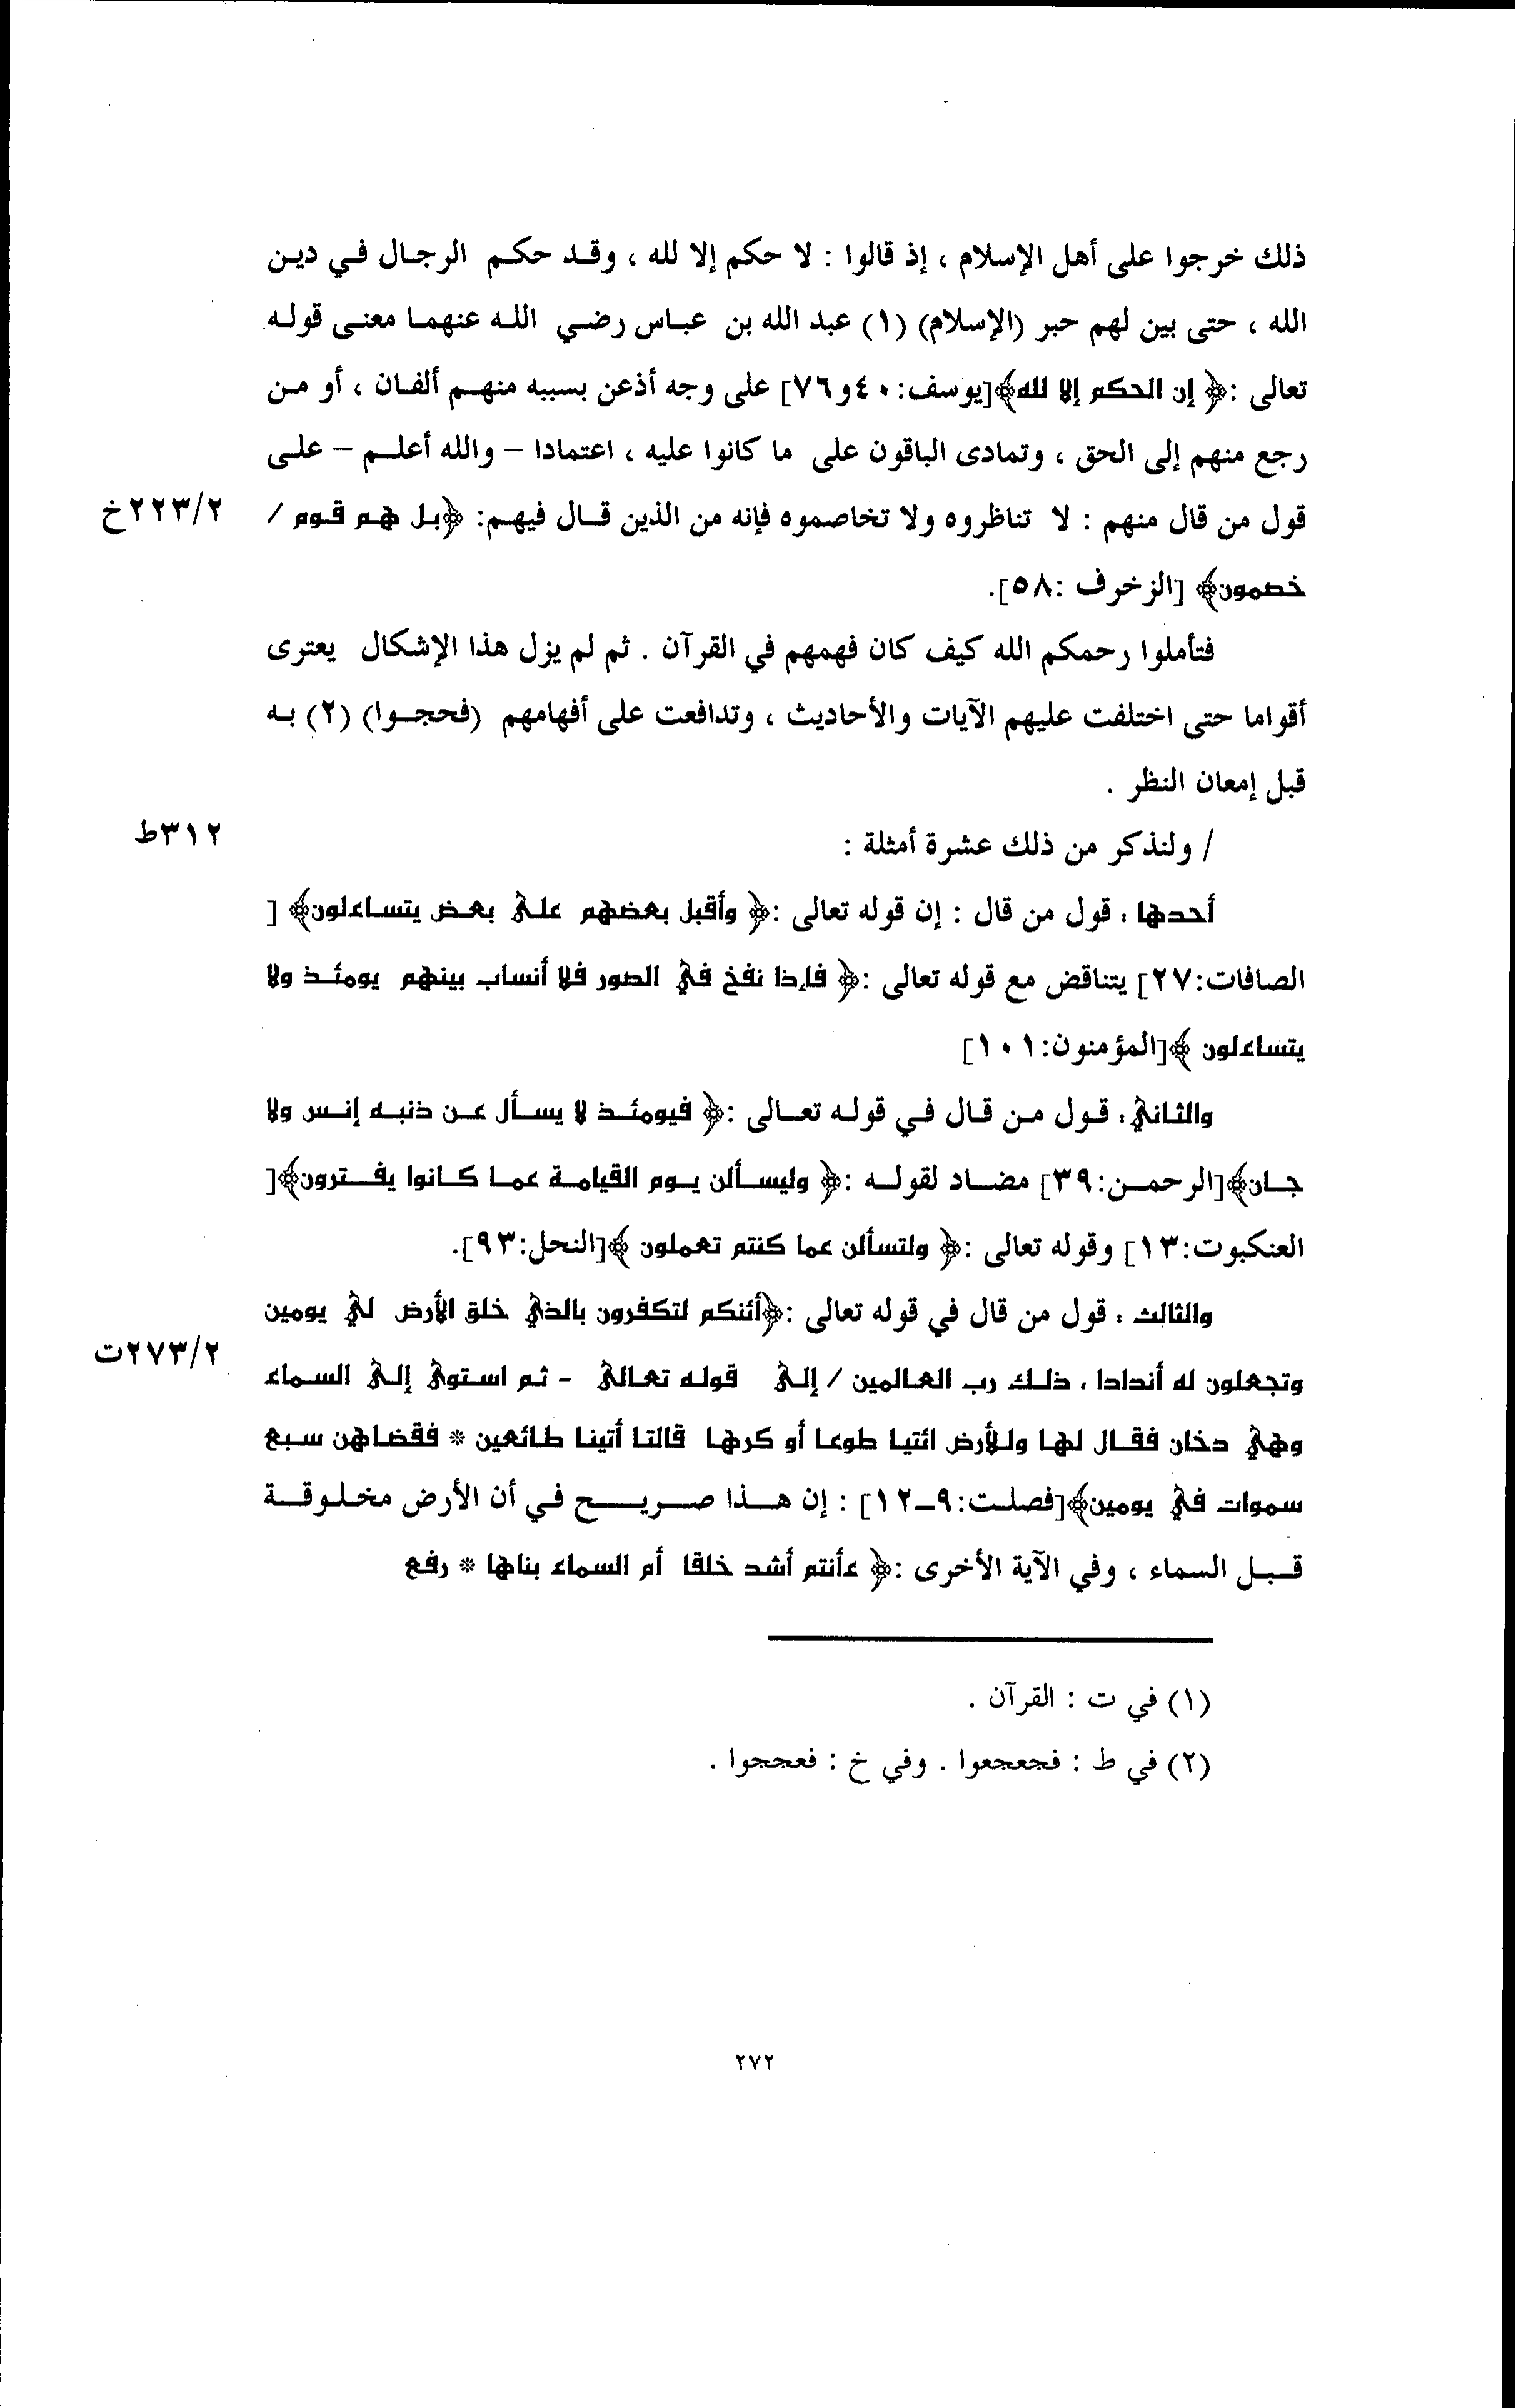 ذلك خرجوا على أهل الإسلام ، إذ قالوا : لا حكم إلا لله ، وقد حكم الرجال في دين
الله ، حتى بين لهم حبر (الإسلام) (١) عبد الله بن عباس رضي الله عنهما معنى قوله
تعالى :﴿ إن الحكم إلا لله﴾[يوسف:٤٠و٧٦] على وجه أذعن بسببه منهم ألفان ، أو من
رجع منهم إلى الحق ، وتمادى الباقون على ما كانوا عليه ، اعتمادا – والله أعلم – على
قول من قال منهم : لا تناظروه ولا تخاصموه فإنه من الذين قال فيهم: ﴿بل هم قوم / ٢٢٣/٢خ
خصمون﴾ [الزخرف :٥٨].
فتأملوا رحمكم الله كيف كان فهمهم في القرآن . ثم لم يزل هذا الإشكال يعترى
أقواما حتى اختلفت عليهم الآيات والأحاديث ، وتدافعت على أفهامهم (فحجوا) (٢) به
قبل إمعان النظر .
/ ولنذكر من ذلك عشرة أمثلة : ٣١٢ط
أحدها ، قول من قال : إن قوله تعالى :﴿ وأقبل بعضهم على بعض يتساءلون﴾ [
الصافات:٢٧] يتناقض مع قوله تعالى :﴿ فإذا نفخ في الصور فلا أنساب بينهم يومئذ ولا
يتساءلون ﴾[المؤمنون:١٠١]
والثاني ، قول من قال في قوله تعالى :﴿ فيومئذ لا يسأل عن ذنبه إنس ولا
جان﴾[الرحمن:٣٩] مضاد لقوله :﴿ وليسألن يوم القيامة عما كانوا يفترون﴾[
العنكبوت:١٣] وقوله تعالى :﴿ ولتسألن عما كنتم تعملون ﴾[النحل:٩٣].
والثالث ، قول من قال في قوله تعالى :﴿أئنكم لتكفرون بالذي خلق الأرض لي يومين
وتجعلون له أندادا ، ذلك رب العالمين / إلى قوله تعالى - ثم استوى إلى السماء ٢٧٣/٢ت
وهي دخان فقال لها وللأرض ائتيا طوعا أو كرها قالتا أتينا طائعين * فقضاهن سبع
سموات في يومين﴾[فصلت:٩–١٢] : إن هذا صريح في أن الأرض مخلوقة
قبل السماء ، وفي الآية الأخرى :﴿ ءأنتم أشد خلقا أم السماء بناها * رفع
(١) في ت : القرآن .
(٢) في ط : فجعجعوا . وفي خ : فعججوا .
٢٧٢